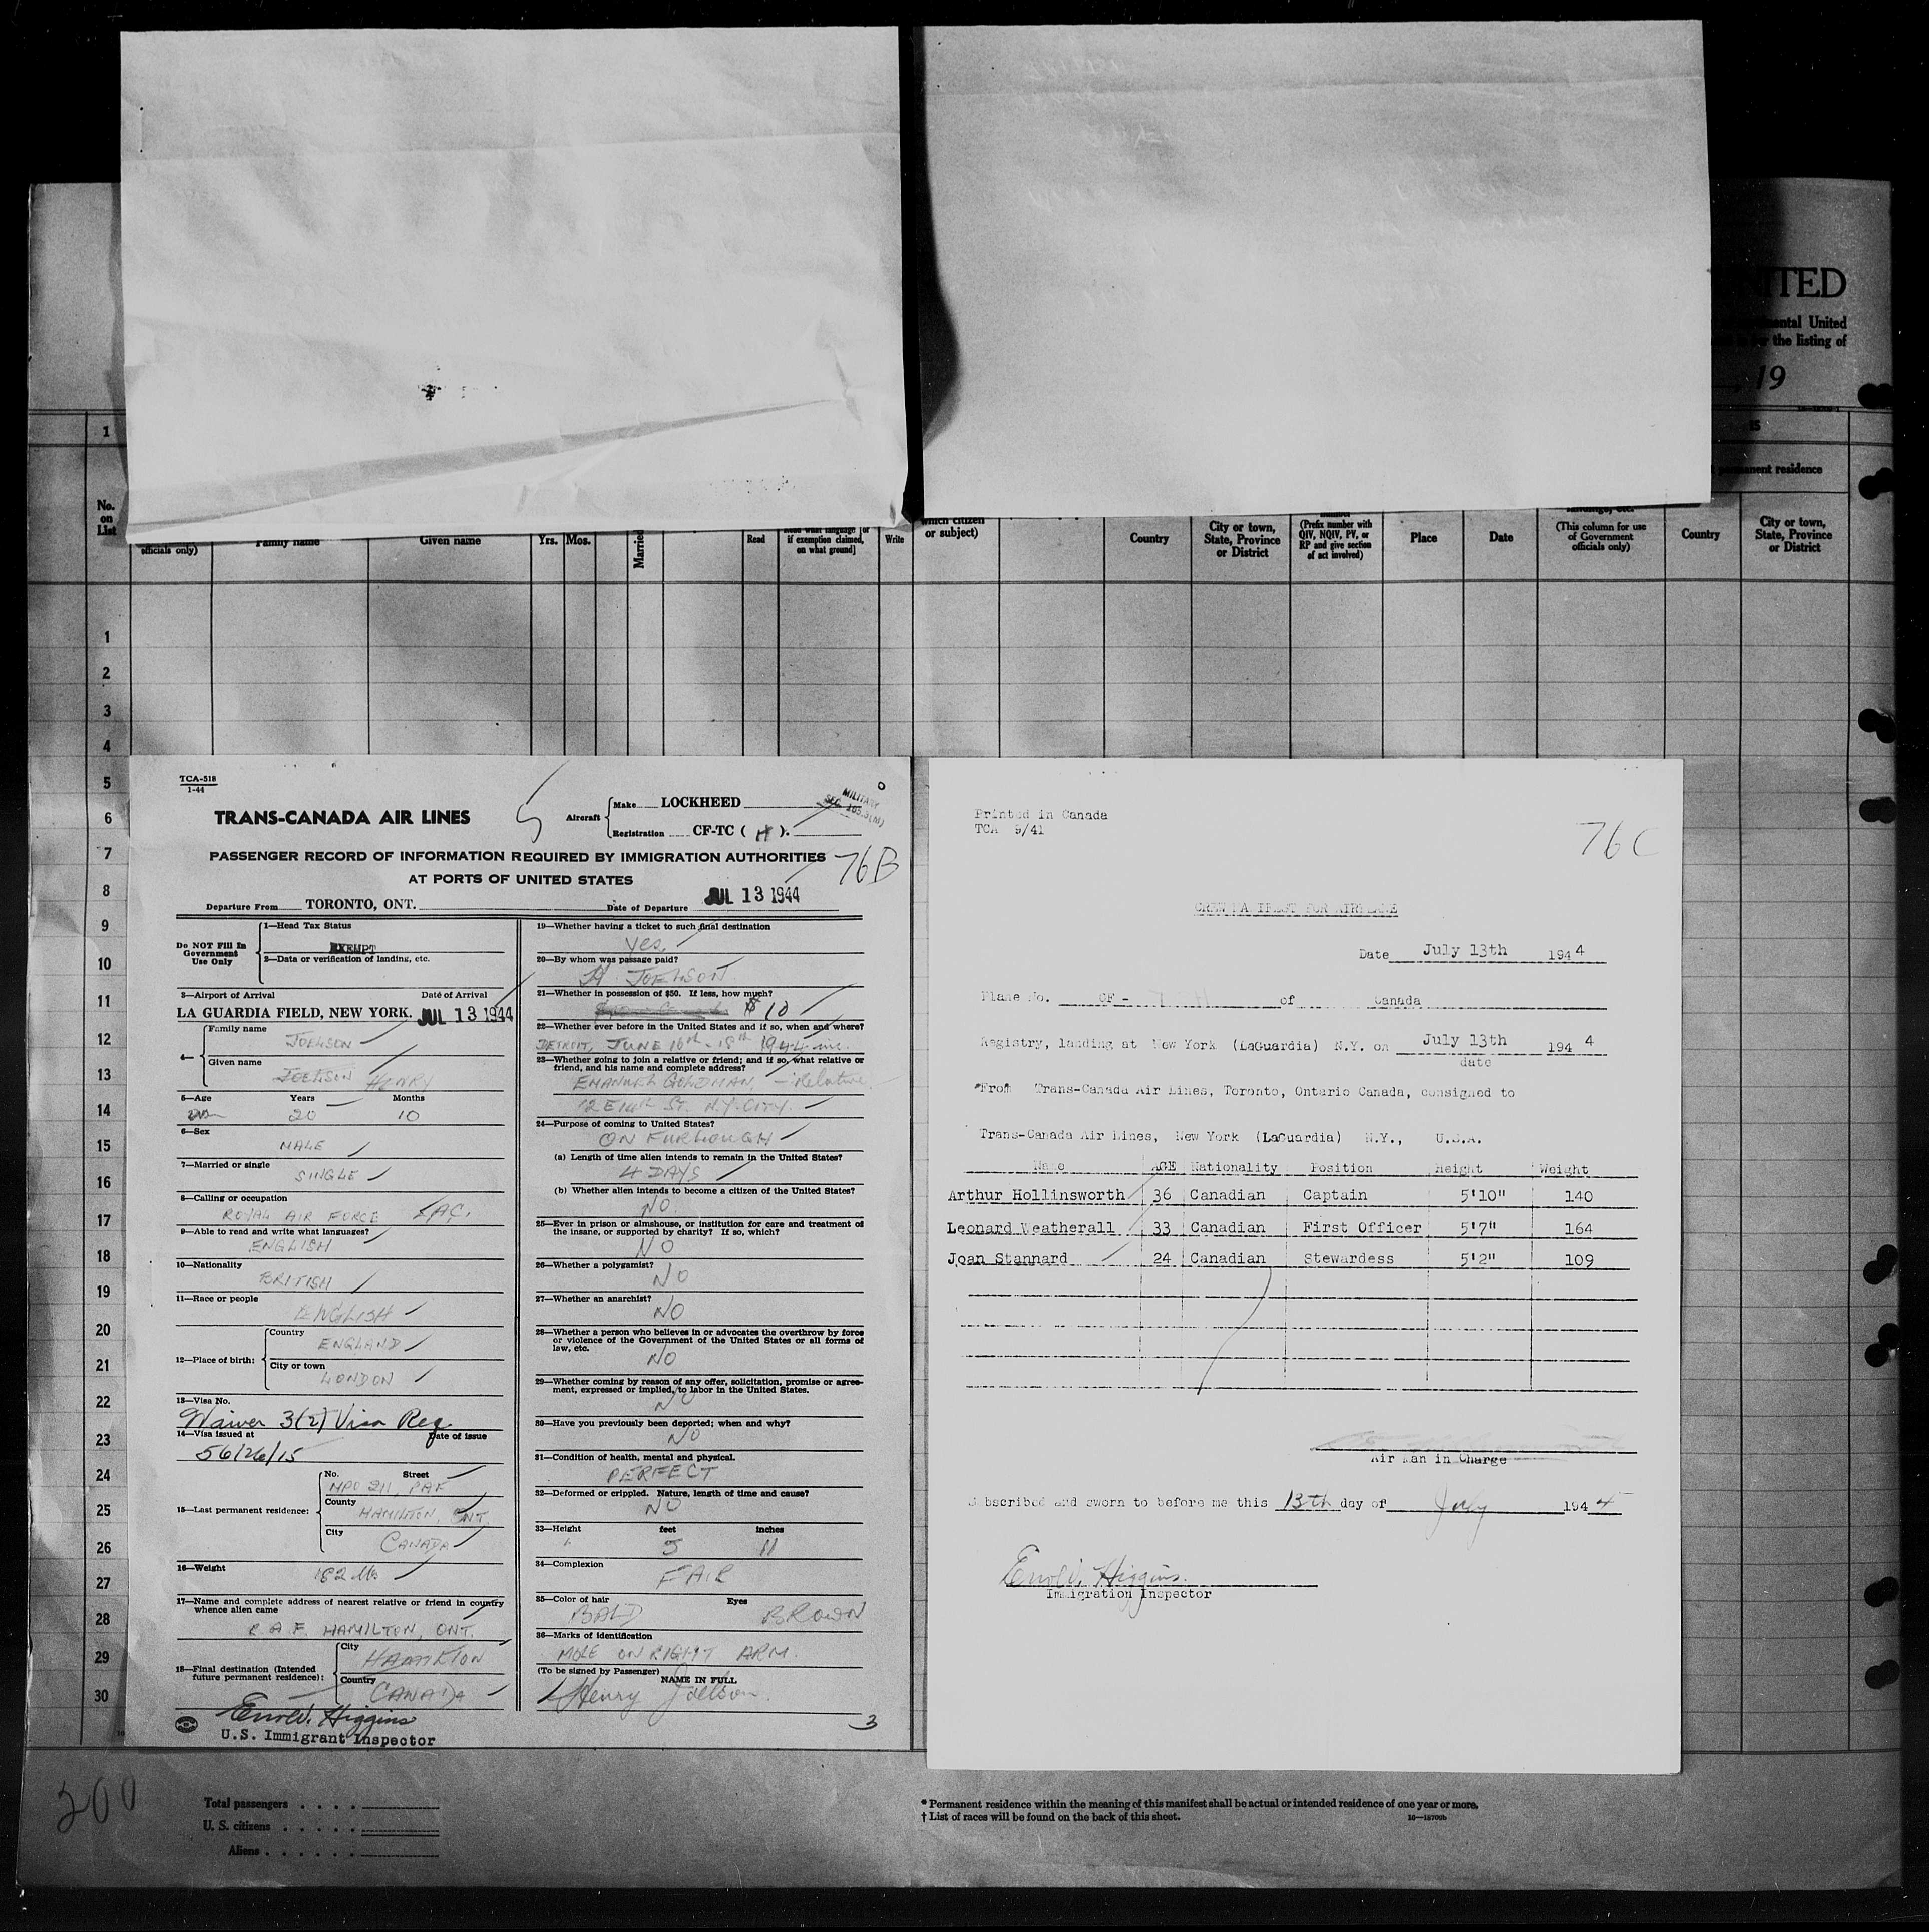 UNITED
ental United
the listing of
, 19
1
15
permanent residence
No.
on
List
officials only)
Family name
Given name
Yrs.
Mos.
Married
Read
Read what language [or
if exemption claimed,
on what ground]
Write
which citizen
or subject)
Country
City or town,
State, Province
or District
number
(Prefix number with
QIV, NQIV, PV, or
RP and give section
of act involved)
Place
Date
(This column for use
of Government
officials only)
Country
City or town,
State, Province
or District
1
2
3
4
5
6
7
8
9
10
11
12
13
14
15
16
17
18
19
20
21
22
23
24
25
26
27
28
29
30
TCA-518
1-44
TRANS-CANADA AIR LINES
5
Aircraft
Make LOCKHEED
Registration CF-TC ( H ).
MILITARY
PASSENGER RECORD OF INFORMATION REQUIRED BY IMMIGRATION AUTHORITIES
AT PORTS OF UNITED STATES
76B
Departure From TORONTO, ONT.
Date of Departure JUL 13 1944
Do NOT Fill In
Government
Use Only
1—Head Tax Status
EXEMPT
2—Data or verification of landing, etc.
3—Airport of Arrival Date of Arrival
LA GUARDIA FIELD, NEW YORK. JUL 13 1944
4—
Family name
JOELSON
Given name
JOELSON HENRY
5—Age Years Months
20 10
6—Sex
MALE
7—Married or single
SINGLE
8—Calling or occupation
ROYAL AIR FORCE LAC.
9—Able to read and write what languages?
ENGLISH
10—Nationality
BRITISH
11—Race or people
ENGLISH
12—Place of birth:
Country
ENGLAND
City or town
LONDON
13—Visa No.
Waiver 3(2) Visa Req
14—Visa issued at Date of issue
56/26/15
15—Last permanent residence:
No. Street
MPO 211, RAF
County
HAMILTON, ONT,
City
CANADA
16—Weight
182 lbs
17—Name and complete address of nearest relative or friend in country
whence alien came
R.A.F. HAMILTON, ONT.
18—Final destination (Intended
future permanent residence):
City
HAMILTON
Country
CANADA
Errol V. Higgins
U.S. Immigrant Inspector
19—Whether having a ticket to such final destination
Yes
20—By whom was passage paid?
H. JOELSON
21—Whether in possession of $50. If less, how much?
$10
22—Whether ever before in the United States and if so, when and where?
DETROIT, JUNE 16th - 18th 1944 inc.
23—Whether going to join a relative or friend; and if so, what relative or
friend, and his name and complete address?
EMANUEL GOLDMAN, - Relative
12 E 14th ST. N.Y. CITY.
24—Purpose of coming to United States?
ON FURLOUGH
(a) Length of time alien intends to remain in the United States?
4 DAYS
(b) Whether alien intends to become a citizen of the United States?
NO.
25—Ever in prison or almshouse, or institution for care and treatment of
the insane, or supported by charity? If so, which?
NO
26—Whether a polygamist?
NO
27—Whether an anarchist?
NO
28—Whether a person who believes in or advocates the overthrow by force
or violence of the Government of the United States or all forms of
law, etc.
NO
29—Whether coming by reason of any offer, solicitation, promise or agree-
ment, expressed or implied, to labor in the United States.
NO
30—Have you previously been deported; when and why?
NO
31—Condition of health, mental and physical.
PERFECT
32—Deformed or crippled. Nature, length of time and cause?
NO
33—Height feet inches
5 11
34—Complexion
FAIR
35—Color of hair Eyes
BALD BROWN
36—Marks of identification
MOLE ON RIGHT ARM.
(To be signed by Passenger) NAME IN FULL
Henry Joelson.
3
Printed in Canada
TCA 9/41
76C
CREW MANIFEST FOR AIRPLANE
Date July 13th 1944
Plane No. CF - of Canada
Registry, landing at New York (LaGuardia) N.Y. on July 13th 1944
date
*From Trans-Canada Air Lines, Toronto, Ontario Canada, consigned to
Trans-Canada Air Lines, New York (LaGuardia) N.Y., U.S.A.
Name AGE Nationality Position Height Weight
Arthur Hollinsworth 36 Canadian Captain 5'10" 140
Leonard Weatherall 33 Canadian First Officer 5'7" 164
Joan Stannard 24 Canadian Stewardess 5'2" 109
Air Man in Charge
Subscribed and sworn to before me this 13th day of July 1944
Errol V. Higgins.
Immigration Inspector
200
Total passengers
U. S. citizens
Aliens
* Permanent residence within the meaning of this manifest shall be actual or intended residence of one year or more.
† List of races will be found on the back of this sheet.
16—18700b